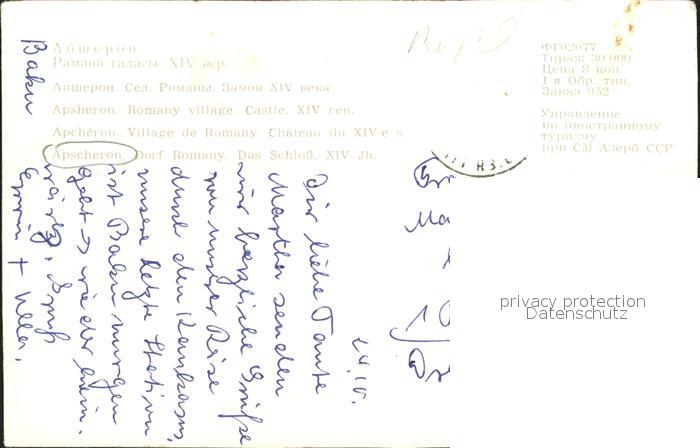 Абшерон
Рамана галасы. XIV әср.
Апшерон. Сел. Романы. Замок XIV века.
Apsheron. Romany village. Castle. XIV cen.
Apchéron. Village de Romany. Chateau du XIV-e s.
Apscheron. Dorf Romany. Das Schloß. XIV Jh.
ФГ02077
Тираж 30 000
Цена 8 коп.
1-я Обр. тип.
Заказ 952
Управление
по иностранному
туризму
при СМ Азерб. ССР
Baku
24.IV.
Dir liebe Tante
Martha senden
wir herzliche Grüße
von unserer Reise
durch den Kaukasus,
unsere letzte Station
ist Baku morgen
geht's wieder heim.
Gruß
Erwin + Ulla.
privacy protection
Datenschutz